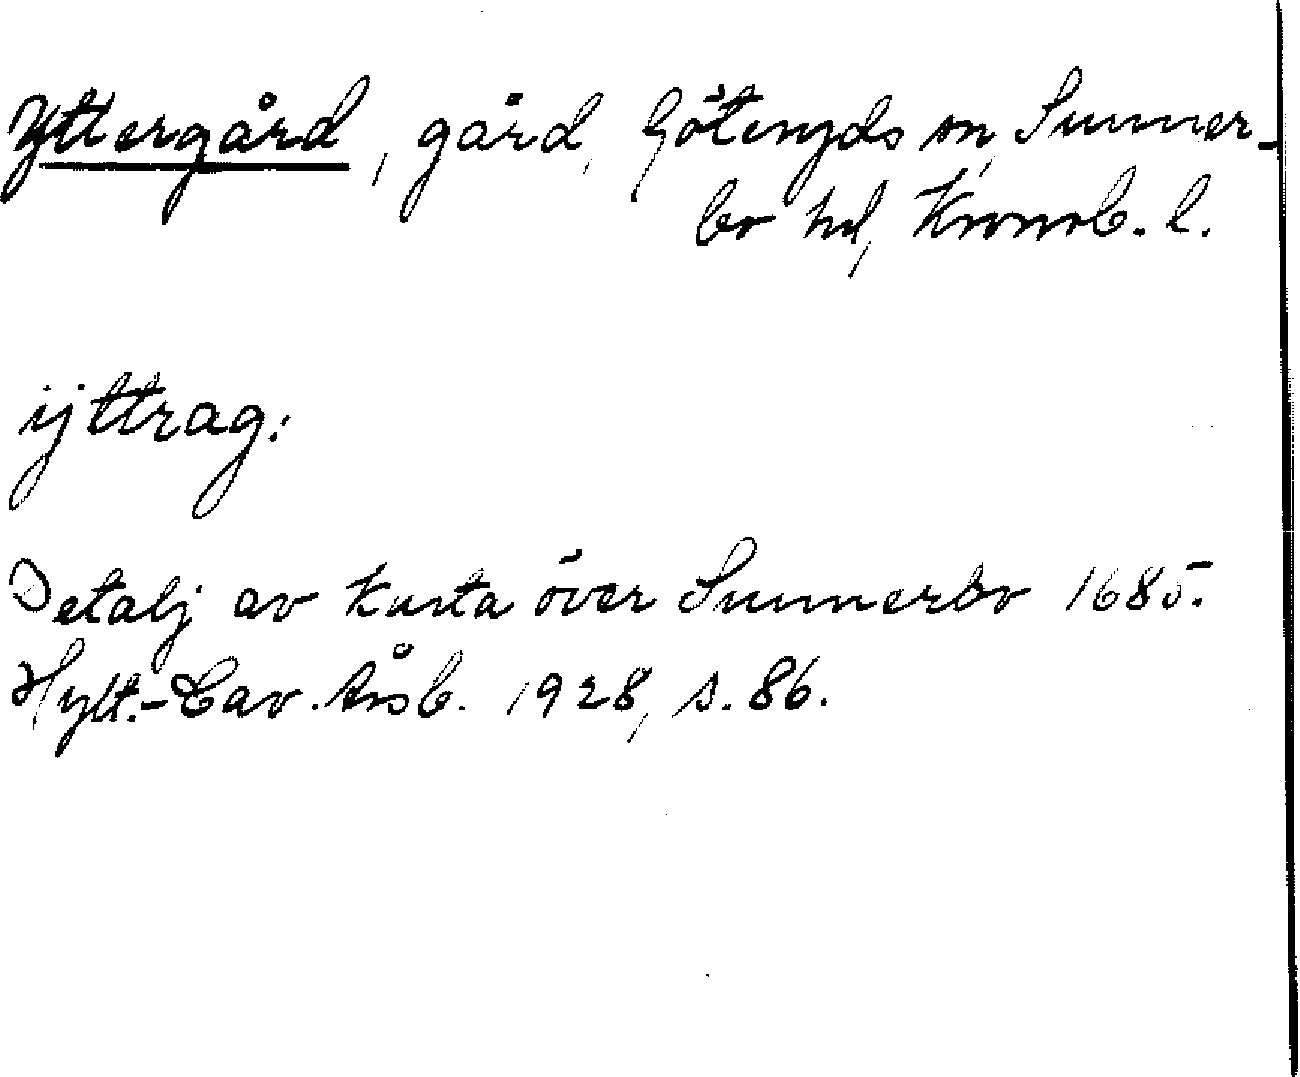 Yttergård, gård, Göteryds sn, Sunner-
bo hd, Kronob. l.
ÿttrag:
Detalj av karta över Sunnerbo 1685.
Hylt.-Cav. Årsb. 1928, s. 86.